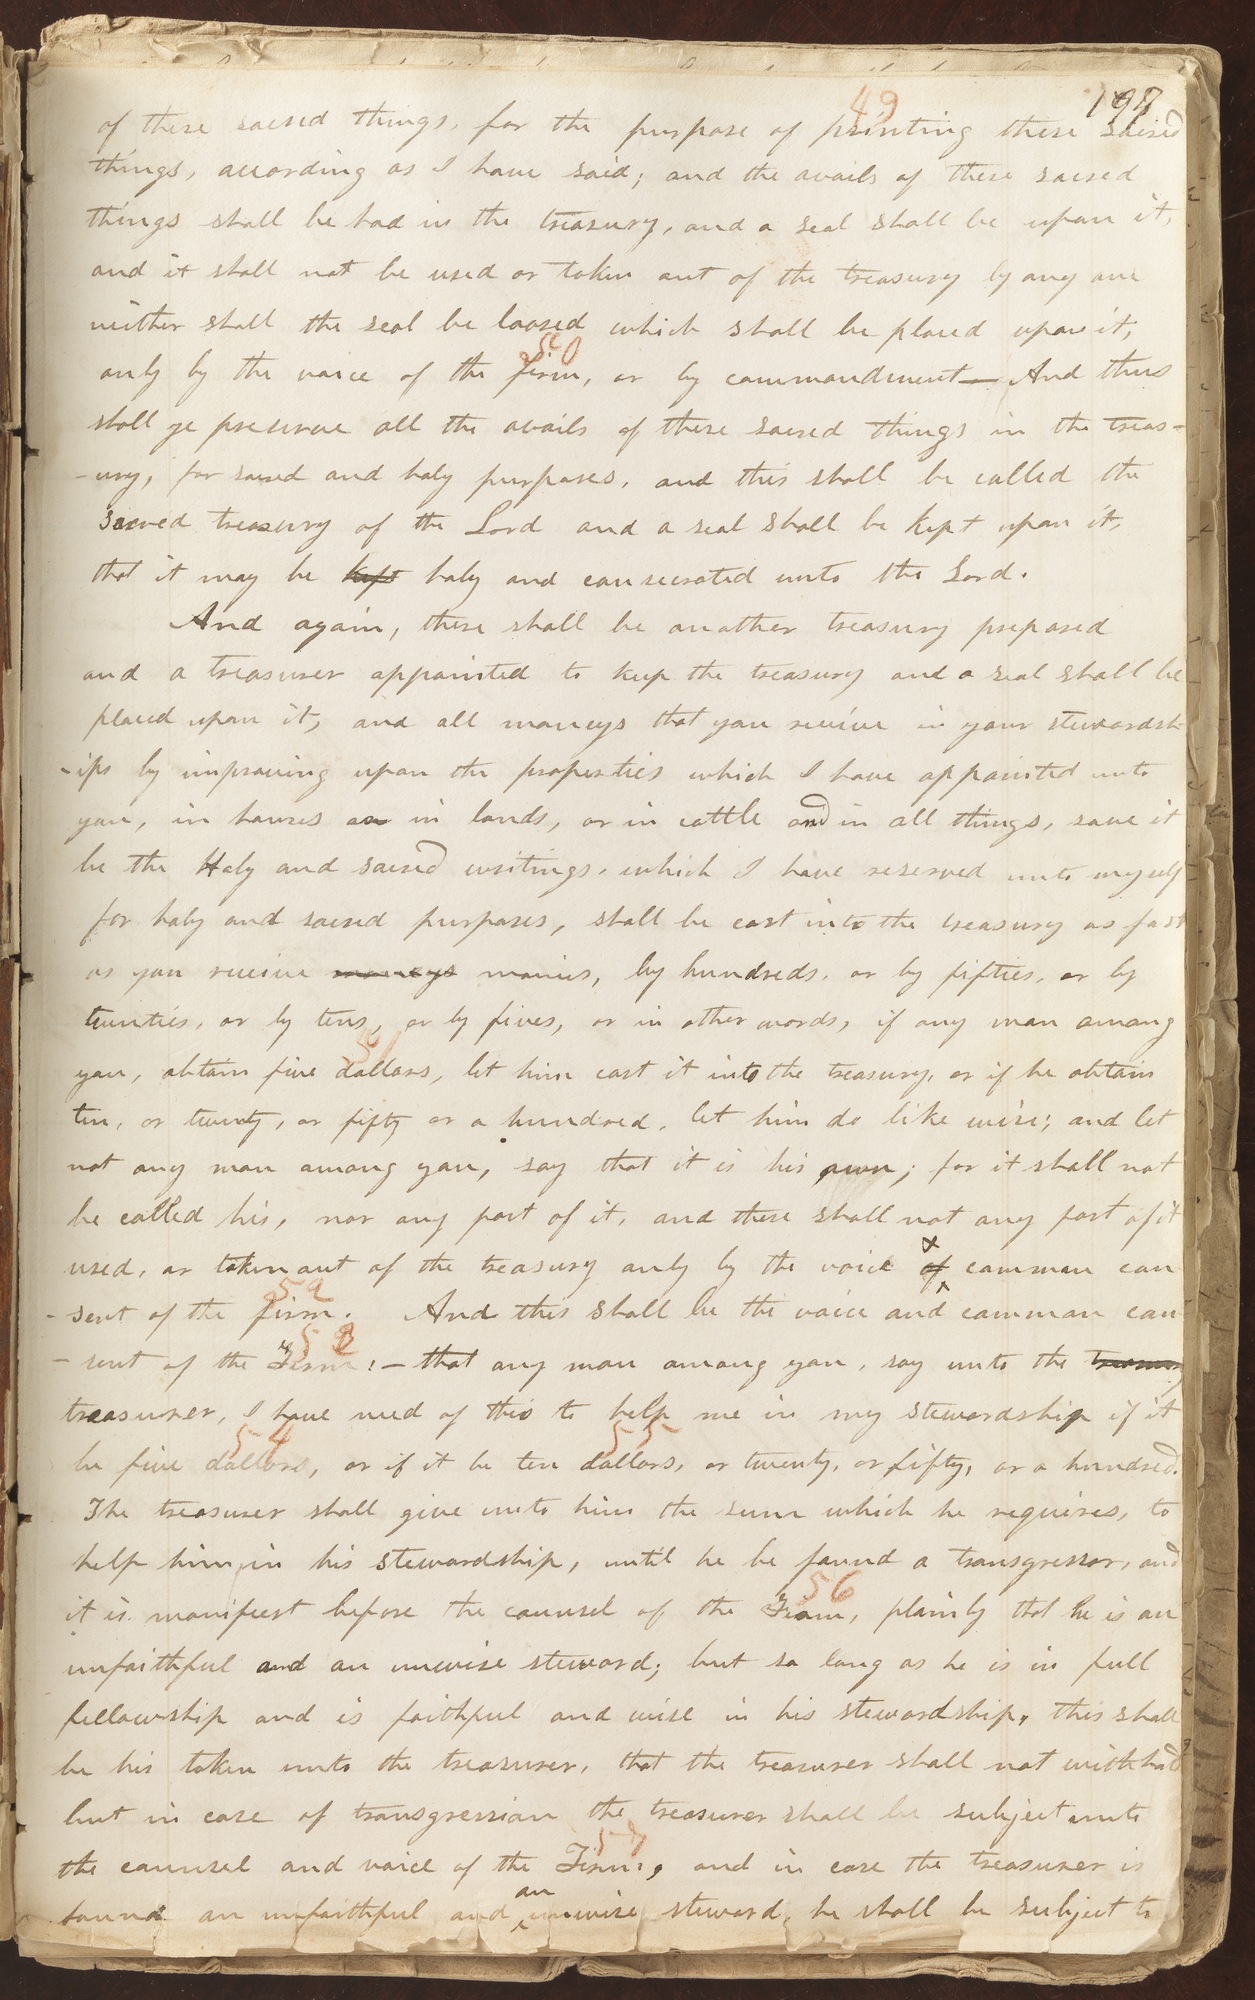 49 197
of these sacred things, for the purpose of printing these sacred
things, according as I have said; and the avails of these sacred
things shall be had in the treasury, and a seal shall be upon it,
and it shall not be used or taken out of the treasury by any one
neither shall the seal be loosed which shall be placed upon it,
50
only by the voice of the firm, or by commandment— And thus
shall ye preserve all the avails of these sacred things in the treas-
-ury, for sacred and holy purposes, and this shall be called the
sacred treasury of the Lord and a seal shall be kept upon it,
that it may be kept holy and consecrated unto the Lord.
And again, there shall be another treasury prepared
and a treasurer appointed to keep the treasury and a seal shall be
placed upon it, and all moneys that you receive in your stewardsh-
-ips by improving upon the properties which I have appointed unto
you, in houses or in lands, or in cattle and in all things, save it
be the Holy and sacred writings, which I have reserved unto myself
for holy and sacred purposes, shall be cast into the treasury as fast
as you receive moneys monies, by hundreds, or by fifties, or by
twenties, or by tens, or by fives, or in other words, if any man among
51
you, obtain five dollars, let him cast it into the treasury, or if he obtain
ten, or twenty, or fifty or a hundred, let him do like wise; and let
not any man among you, say that it is his own; for it shall not
be called his, nor any part of it, and there shall not any part of it
used, or taken out of the treasury only by the voice of & common con
52
-sent of the firm. And this shall be the voice and common con
53
-sent of the Firm:— that any man among you, say unto the
treasurer, I have need of this to help me in my stewardship if it
54 55
be five dollars, or if it be ten dollars, or twenty, or fifty, or a hundred.
The treasurer shall give unto him the sum which he requires, to
help him in his stewardship, until he be found a transgressor, and
56
it is manifest before the counsel of the Firm, plainly that he is an
unfaithful and an unwise steward; but so long as he is in full
fellowship and is faithful and wise in his stewardship, this shall
be his token unto the treasurer, that the treasurer shall not withhold
but in case of transgression the treasurer shall be subject unto
57
the counsel and voice of the Firm, and in case the treasurer is
found an unfaithful and an unwise steward, he shall be subject to